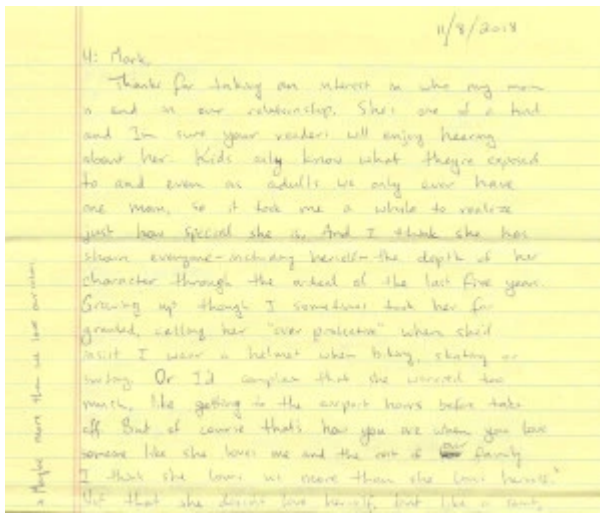 11/8/2018
Hi Mark,
Thanks for taking an interest in who my mom
is and in our relationship. She's one of a kind
and I'm sure your readers will enjoy hearing
about her. Kids only know what they're exposed
to and even as adults we only ever have
one mom, so it took me a while to realize
just how special she is. And I think she has
shown everyone - including herself - the depth of her
character through the ordeal of the last five years.
Growing up though I sometimes took her for
granted, calling her "over protective" when she'd
insist I wear a helmet when biking, skating or
Or I'd complain that she worried too
much, like getting to the airport hours before take
off. But of course that's how you are when you love
someone like she loves me and the rest of our family
I think she loves us more than she loves herself.*
Not that she doesn't love herself, but like a
* Maybe more than we love ourselves